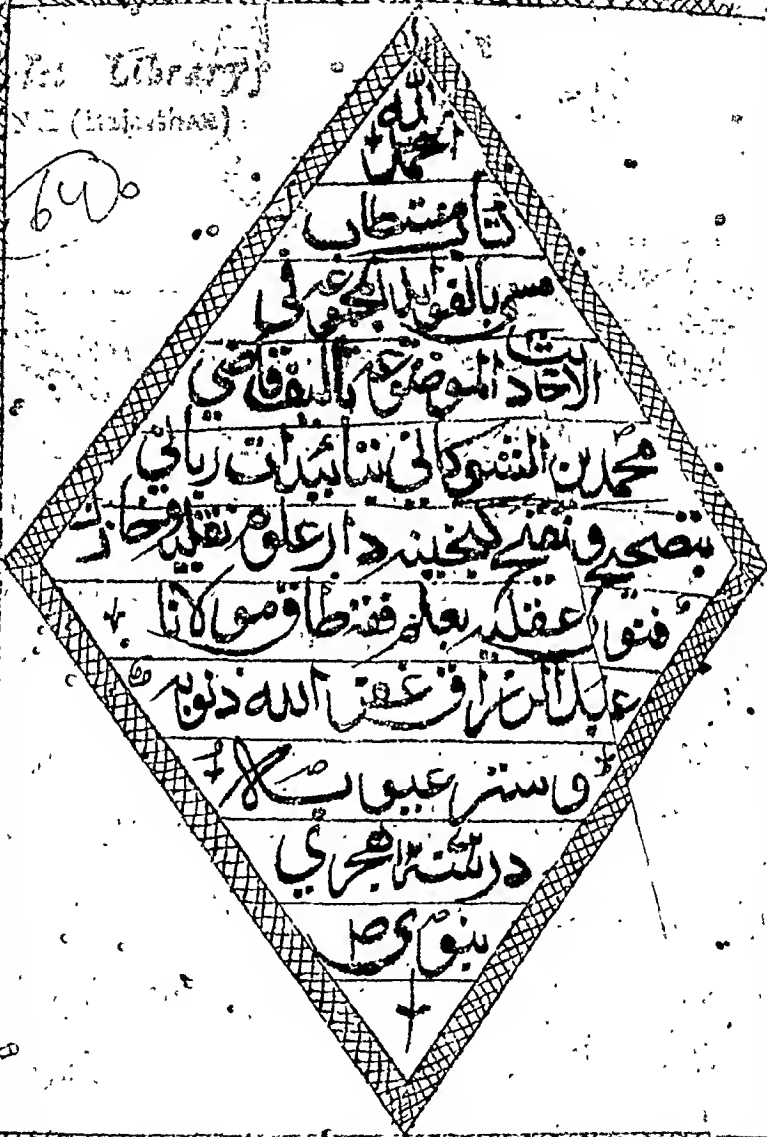 Library
(Rajasthan)
الحمد لله
کتاب مستطاب
مسمى بالفوايد المجموعه في
الاحاديث الموضوعه تاليف قاضي
محمد بن الشوكاني بتائيدات رباني
بتصحيح و تنقيح گنجينه دار علوم نقليه و خازن
فنون عقليه مولانا
عبد الرزاق غفر الله ذنوبه
و ستر عيوبه
در سنه هجري
نبوي